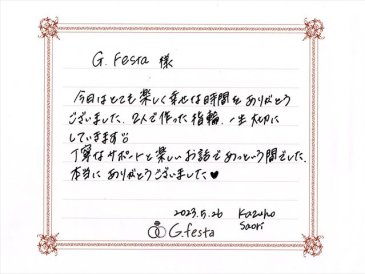 G. Festa 様
今日はとても楽しく幸せな時間をありがとう
ございました。2人で作った指輪、一生大切に
していきます☺
丁寧なサポートと楽しいお話であっという間でした。
本当にありがとうございました♥
2023.5.26 Kazuho
Saori
G.festa